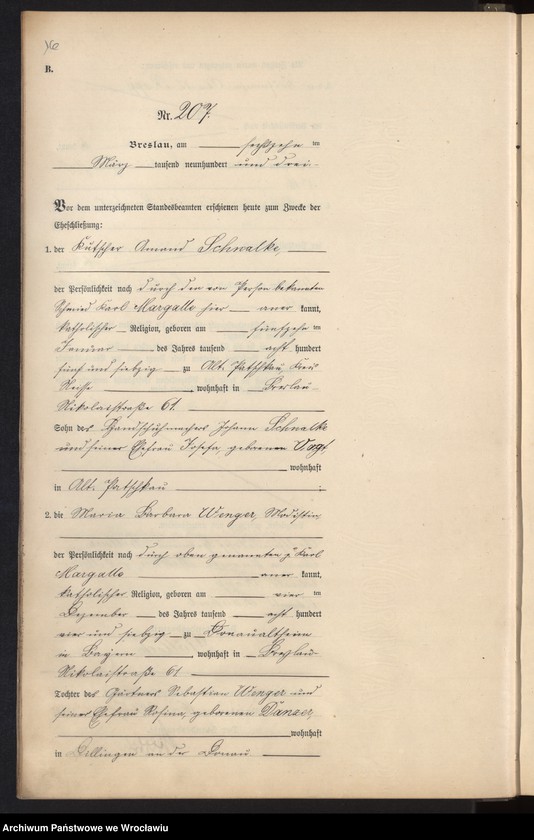 B.
Nr. 207.
Breslau, am sechszehn ten
März tausend neunhundert und drei
Vor dem unterzeichneten Standesbeamten erschienen heute zum Zwecke der
Eheschließung:
1. der Kutscher Amand Schwalke,
der Persönlichkeit nach durch den von Person bekannten
Schmied Karl Margallo hier aner kannt,
katholischer Religion, geboren am fünfzehn ten
Januar des Jahres tausend acht hundert
fünf und siebzig zu Alt Patschkau, Kreis
Neisse, wohnhaft in Breslau
Nikolaistraße 61.
Sohn des Handschuhmachers Johann Schwalke
und seiner Ehefrau Josefa, geborenen Vogt
wohnhaft
in Alt Patschkau ;
2. die Maria Barbara Wenger, Modistin
der Persönlichkeit nach durch oben genannten Karl
Margallo aner kannt,
katholischer Religion, geboren am vier ten
Dezember des Jahres tausend acht hundert
vier und siebzig zu Donaualtheim
in Bayern, wohnhaft in Breslau
Nikolaistraße 61
Tochter des Gärtners Sebastian Wenger und
seiner Ehefrau Rosina, geborenen Danzer,
wohnhaft
in Dillingen an der Donau
Archiwum Państwowe we Wrocławiu